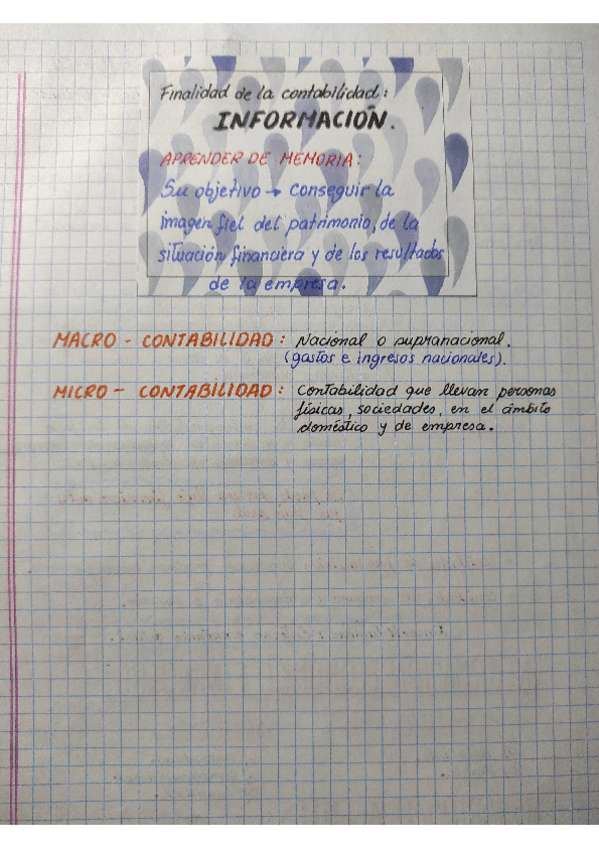 Finalidad de la contabilidad:
INFORMACIÓN.
APRENDER DE MEMORIA:
Su objetivo → conseguir la
imagen fiel del patrimonio, de la
situación financiera y de los resultados
de la empresa.
MACRO - CONTABILIDAD: Nacional o supranacional.
(gastos e ingresos nacionales).
MICRO - CONTABILIDAD: Contabilidad que llevan personas
físicas, sociedades, en el ámbito
doméstico y de empresa.